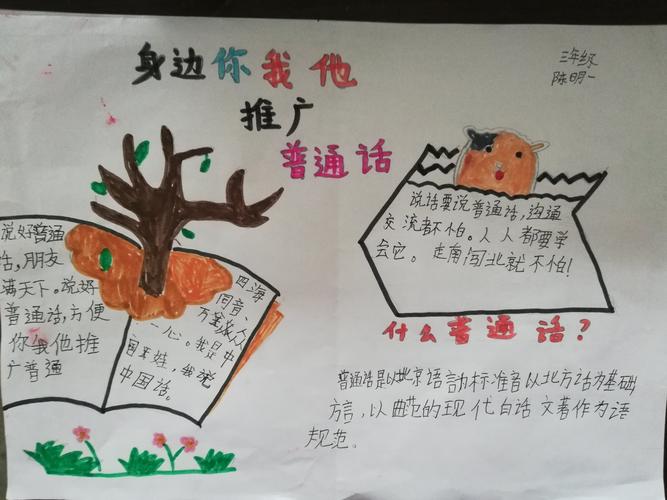 身边你我他
推广
普通话
三年级
陈明一
说好普通
话,朋友
满天下。说好
普通话,方便
你我他推
广普通
四海
同音、
万众人人
一心。我是中
国王娃,我说
中国话。
说话要说普通话,沟通
交流者不怕。人人都要学
会它。走南闯北就不怕!
什么普通话?
普通话是以北京语 标准音以北方话为基础
方言,以典范的现代白话文著作为语
规范。